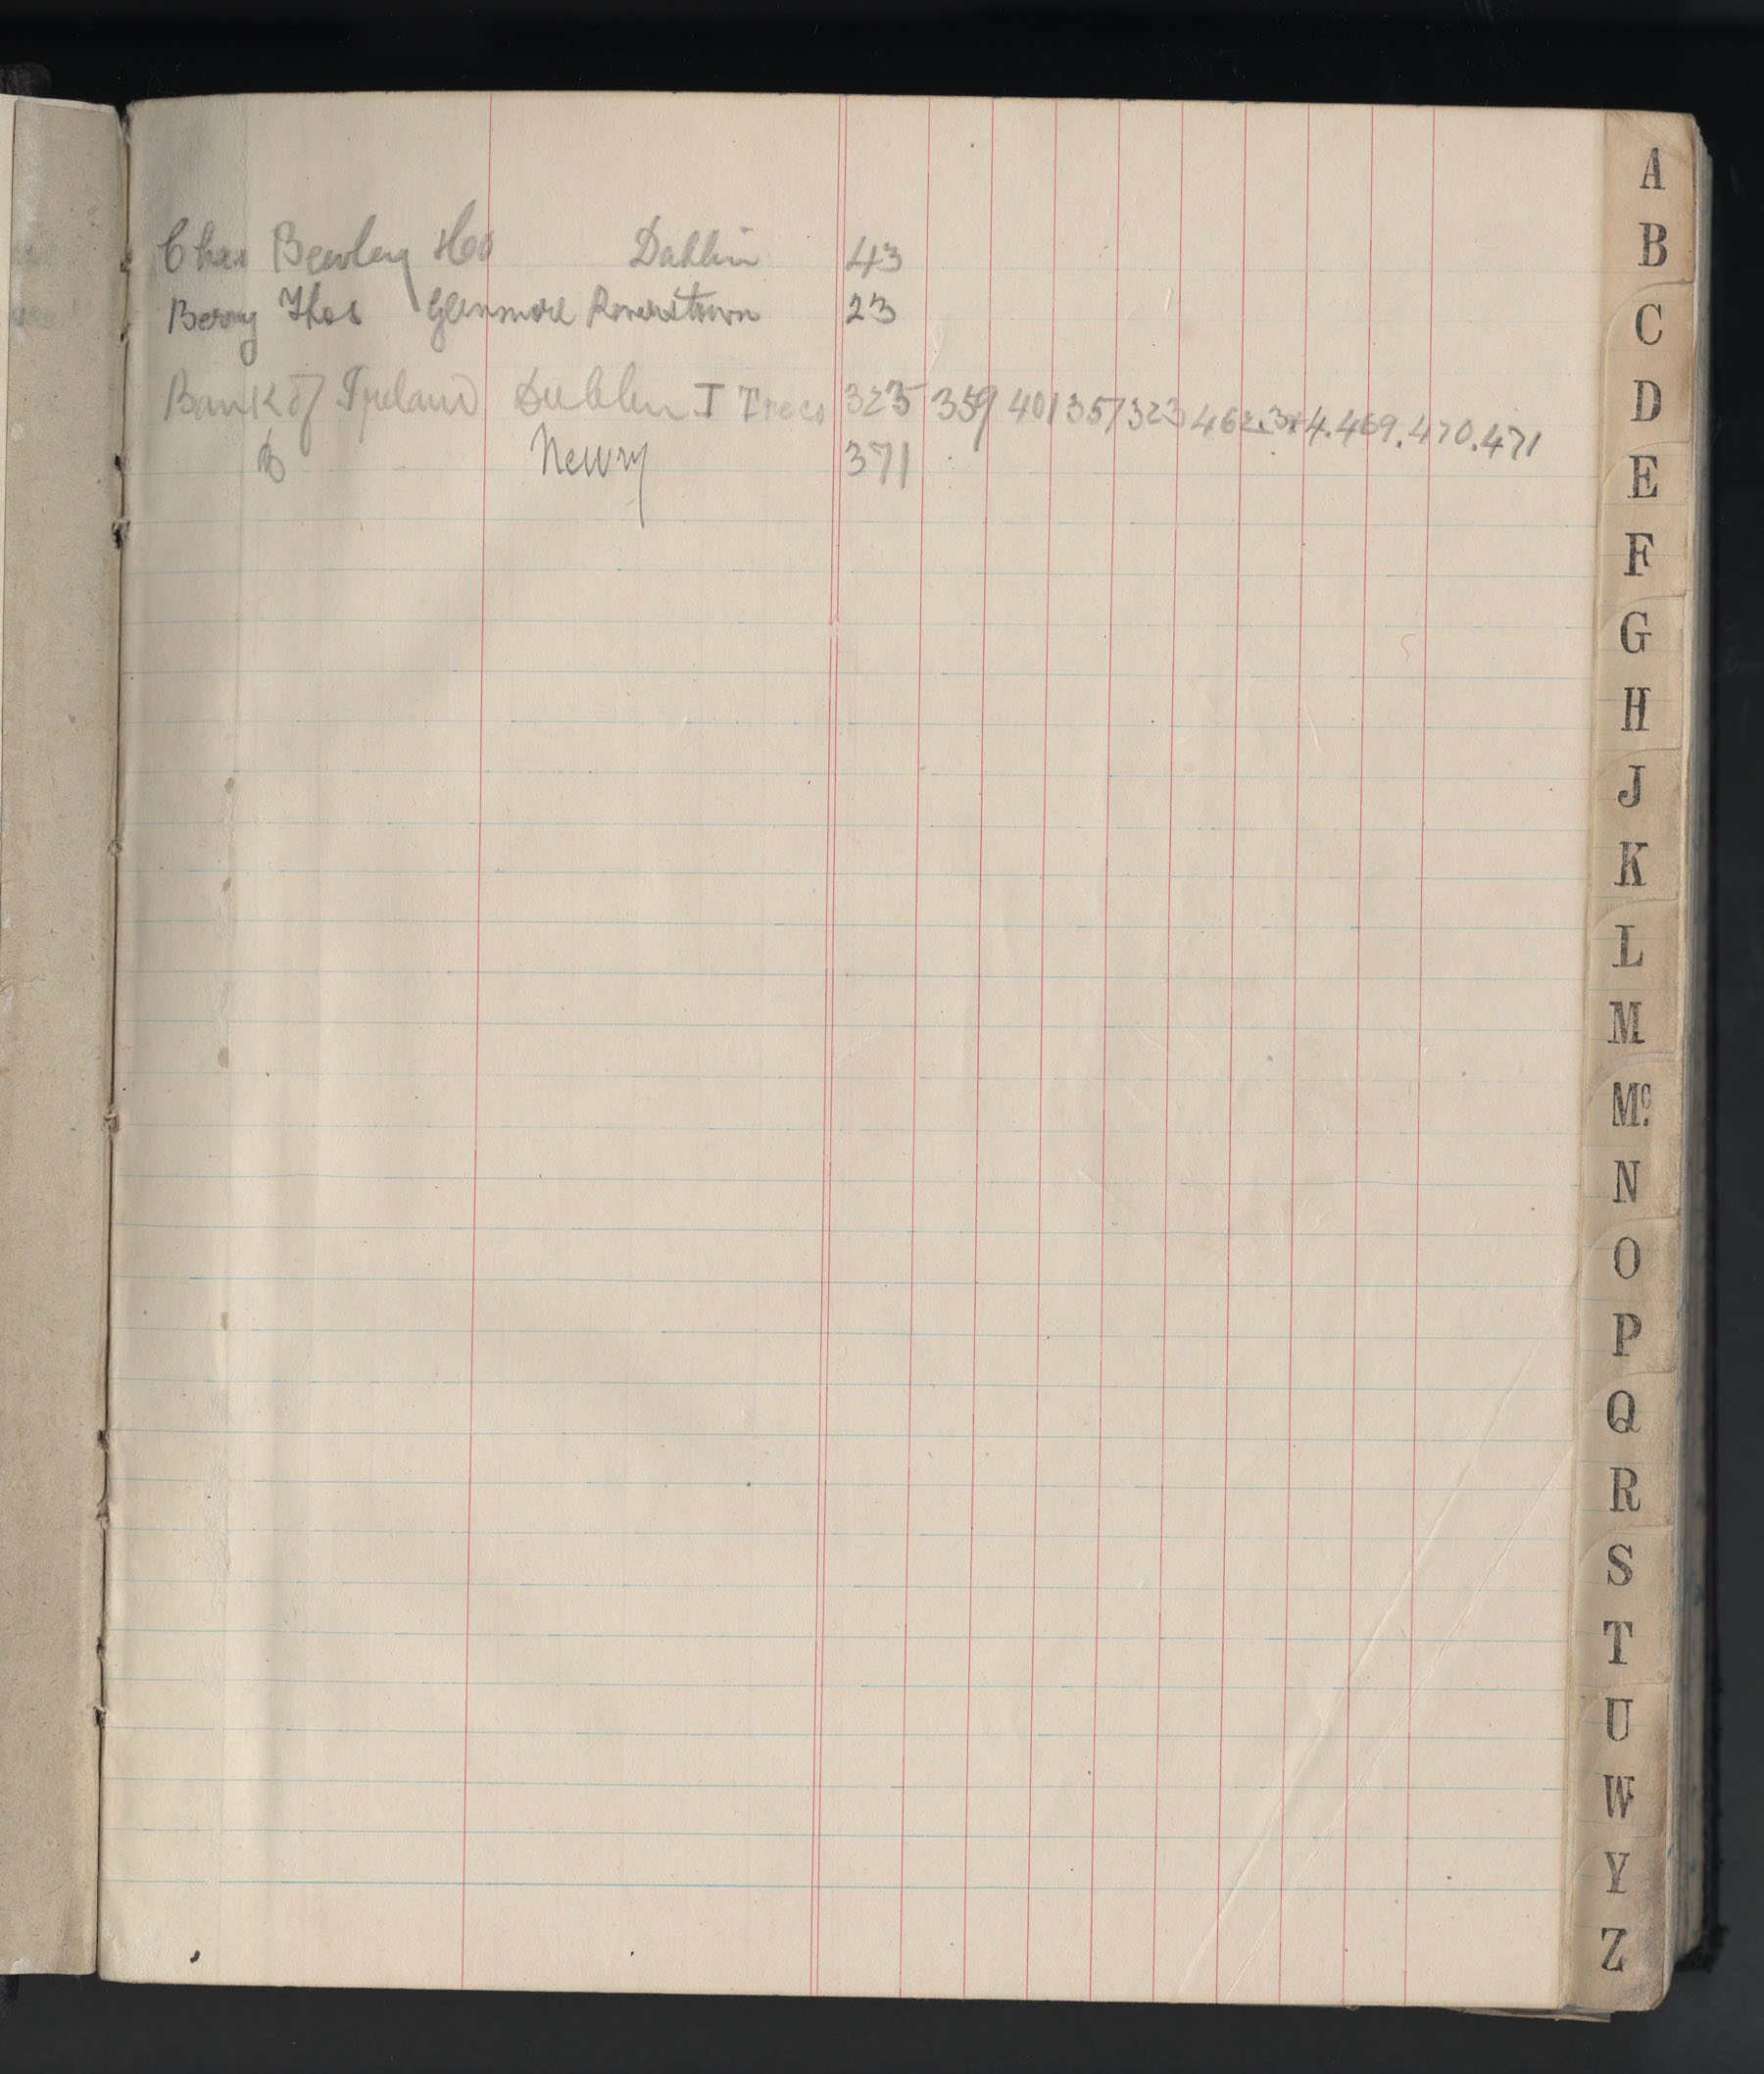 Chas Bewley & Co Dublin 43
Berry Thos Glenmore Riverstown 23
Bank of Ireland Dublin I Trees 325 359 401 357 323 462. 469. 470. 471
Do Newry 371
A
B
C
D
E
F
G
H
J
K
L
M
Mc.
N
O
P
Q
R
S
T
U
W
Y
Z